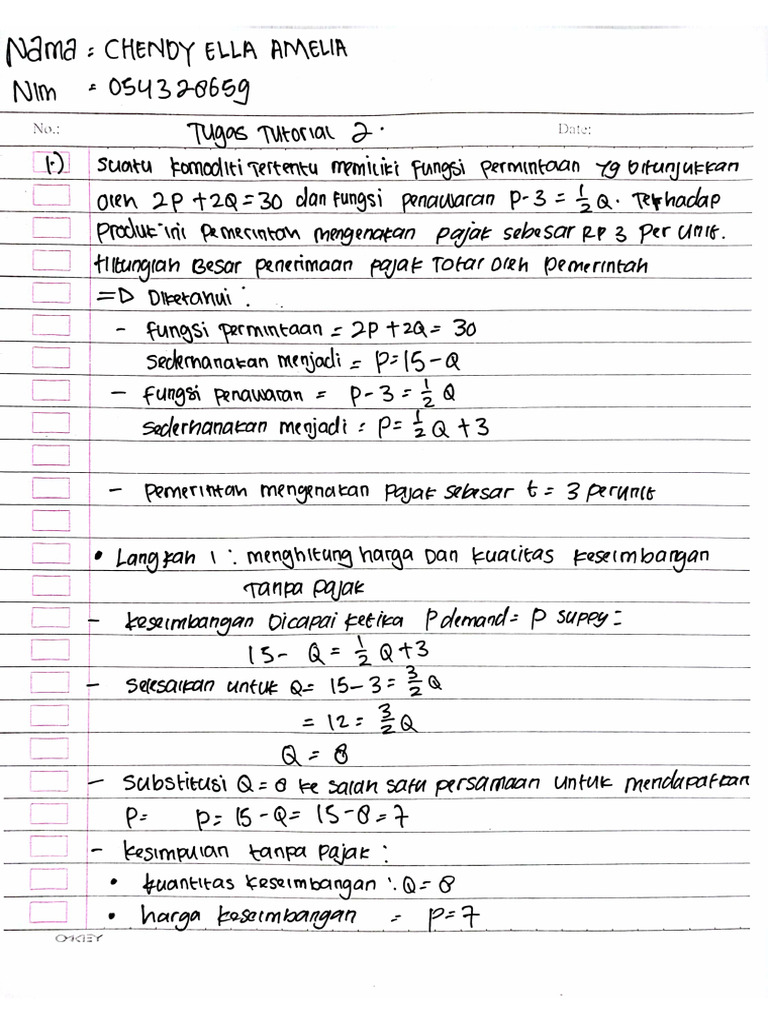 Nama : CHENDY ELLA AMELIA
NIm = 054328659
No.: Tugas Tutorial 2. Date:
1.) Suatu komoditi tertentu memiliki fungsi permintaan yg ditunjukkan
oleh 2P + 2Q = 30 dan fungsi penawaran P - 3 = 1/2 Q. Terhadap
produk ini pemerintah mengenakan pajak sebesar RP 3 per unit.
Hitunglah Besar penerimaan pajak Total oleh pemerintah
=D Diketahui :
- fungsi permintaan = 2P + 2Q = 30
sederhanakan menjadi = P = 15 - Q
- fungsi penawaran = P - 3 = 1/2 Q
sederhanakan menjadi : P = 1/2 Q + 3
- pemerintah mengenakan pajak sebesar t = 3 perunit
• Langkah 1 : menghitung harga Dan kualitas keseimbangan
Tanpa pajak
- keseimbangan Dicapai ketika P demand = P suppy =
15 - Q = 1/2 Q + 3
- selesaikan untuk Q = 15 - 3 = 3/2 Q
= 12 = 3/2 Q
Q = 8
- Substitusi Q = 8 ke salah satu persamaan untuk mendapatkan
P = P = 15 - Q = 15 - 8 = 7
- kesimpulan tanpa pajak :
• kuantitas keseimbangan : Q = 8
• harga keseimbangan = P = 7
OKEY